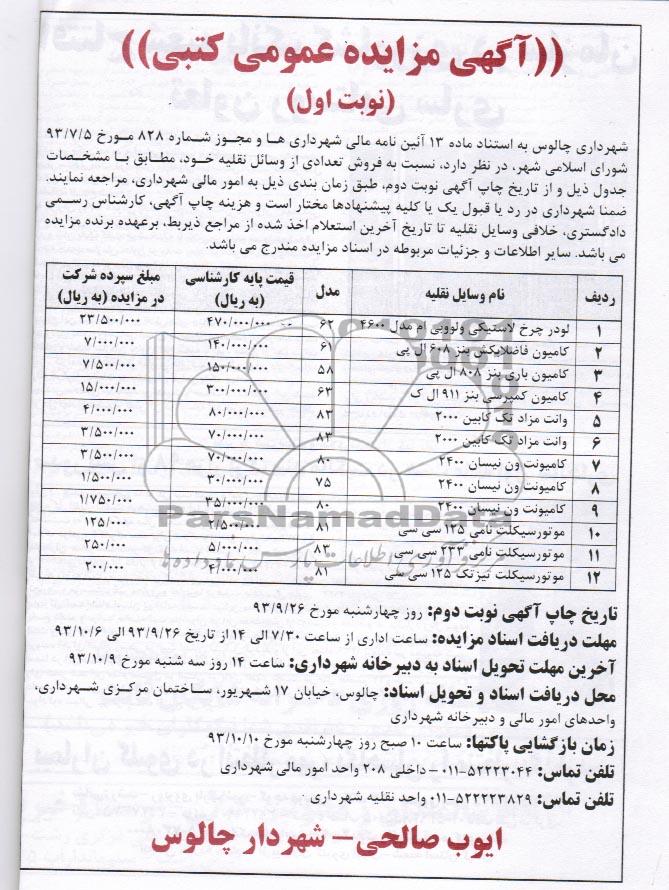 ((آگهی مزایده عمومی کتبی))
(نوبت اول)
شهرداری چالوس به استناد ماده ۱۳ آئین نامه مالی شهرداری ها و مجوز شماره ۸۲۸ مورخ ۹۳/۷/۵
شورای اسلامی شهر، در نظر دارد، نسبت به فروش تعدادی از وسائل نقلیه خود، مطابق با مشخصات
جدول ذیل و از تاریخ چاپ آگهی نوبت دوم، طبق زمان بندی ذیل به امور مالی شهرداری، مراجعه نمایند.
ضمنا شهرداری در رد یا قبول یک یا کلیه پیشنهادها مختار است و هزینه چاپ آگهی، کارشناس رسمی
دادگستری، خلافی وسایل نقلیه تا تاریخ آخرین استعلام اخذ شده از مراجع ذیربط، برعهده برنده مزایده
می باشد. سایر اطلاعات و جزئیات مربوطه در اسناد مزایده مندرج می باشد.
ردیف نام وسایل نقلیه مدل قیمت پایه کارشناسی (به ریال) مبلغ سپرده شرکت در مزایده (به ریال)
۱ لودر چرخ لاستیکی ولووبی ام مدل ۴۶۰۰ ۶۲ ۴۷۰/۰۰۰/۰۰۰ ۲۳/۵۰۰/۰۰۰
۲ کامیون فاضلابکش بنز ۶۰۸ ال پی ۶۱ ۱۴۰/۰۰۰/۰۰۰ ۷/۰۰۰/۰۰۰
۳ کامیون باری بنز ۸۰۸ ال پی ۵۸ ۱۵۰/۰۰۰/۰۰۰ ۷/۵۰۰/۰۰۰
۴ کامیون کمپرسی بنز ۹۱۱ ال ک ۶۳ ۳۰۰/۰۰۰/۰۰۰ ۱۵/۰۰۰/۰۰۰
۵ وانت مزاد تک کابین ۲۰۰۰ ۸۲ ۸۰/۰۰۰/۰۰۰ ۴/۰۰۰/۰۰۰
۶ وانت مزاد تک کابین ۲۰۰۰ ۸۳ ۷۰/۰۰۰/۰۰۰ ۳/۵۰۰/۰۰۰
۷ کامیونت ون نیسان ۲۴۰۰ ۸۰ ۷۰/۰۰۰/۰۰۰ ۳/۵۰۰/۰۰۰
۸ کامیونت ون نیسان ۲۴۰۰ ۷۵ ۳۰/۰۰۰/۰۰۰ ۱/۵۰۰/۰۰۰
۹ کامیونت ون نیسان ۲۴۰۰ ۸۰ ۳۵/۰۰۰/۰۰۰ ۱/۷۵۰/۰۰۰
۱۰ موتورسیکلت نامی ۱۲۵ سی سی ۸۱ ۲/۵۰۰/۰۰۰ ۱۲۵/۰۰۰
۱۱ موتورسیکلت نامی ۲۳۳ سی سی ۸۳ ۵/۰۰۰/۰۰۰ ۲۵۰/۰۰۰
۱۲ موتورسیکلت تیزتک ۱۲۵ سی سی ۸۱ ۴/۰۰۰/۰۰۰ ۲۰۰/۰۰۰
ParsNamadData
تاریخ چاپ آگهی نوبت دوم: روز چهارشنبه مورخ ۹۳/۹/۲۶
مهلت دریافت اسناد مزایده: ساعت اداری از ساعت ۷/۳۰ الی ۱۴ از تاریخ ۹۳/۹/۲۶ الی ۹۳/۱۰/۶
آخرین مهلت تحویل اسناد به دبیرخانه شهرداری: ساعت ۱۴ روز سه شنبه مورخ ۹۳/۱۰/۹
محل دریافت اسناد و تحویل اسناد: چالوس، خیابان ۱۷ شهریور، ساختمان مرکزی شهرداری،
واحدهای امور مالی و دبیرخانه شهرداری
زمان بازگشایی پاکتها: ساعت ۱۰ صبح روز چهارشنبه مورخ ۹۳/۱۰/۱۰
تلفن تماس: ۵۲۲۲۳۰۴۴-۰۱۱ - داخلی ۲۰۸ واحد امور مالی شهرداری
تلفن تماس: ۵۲۲۲۳۸۲۹-۰۱۱ واحد نقلیه شهرداری
ایوب صالحی- شهردار چالوس